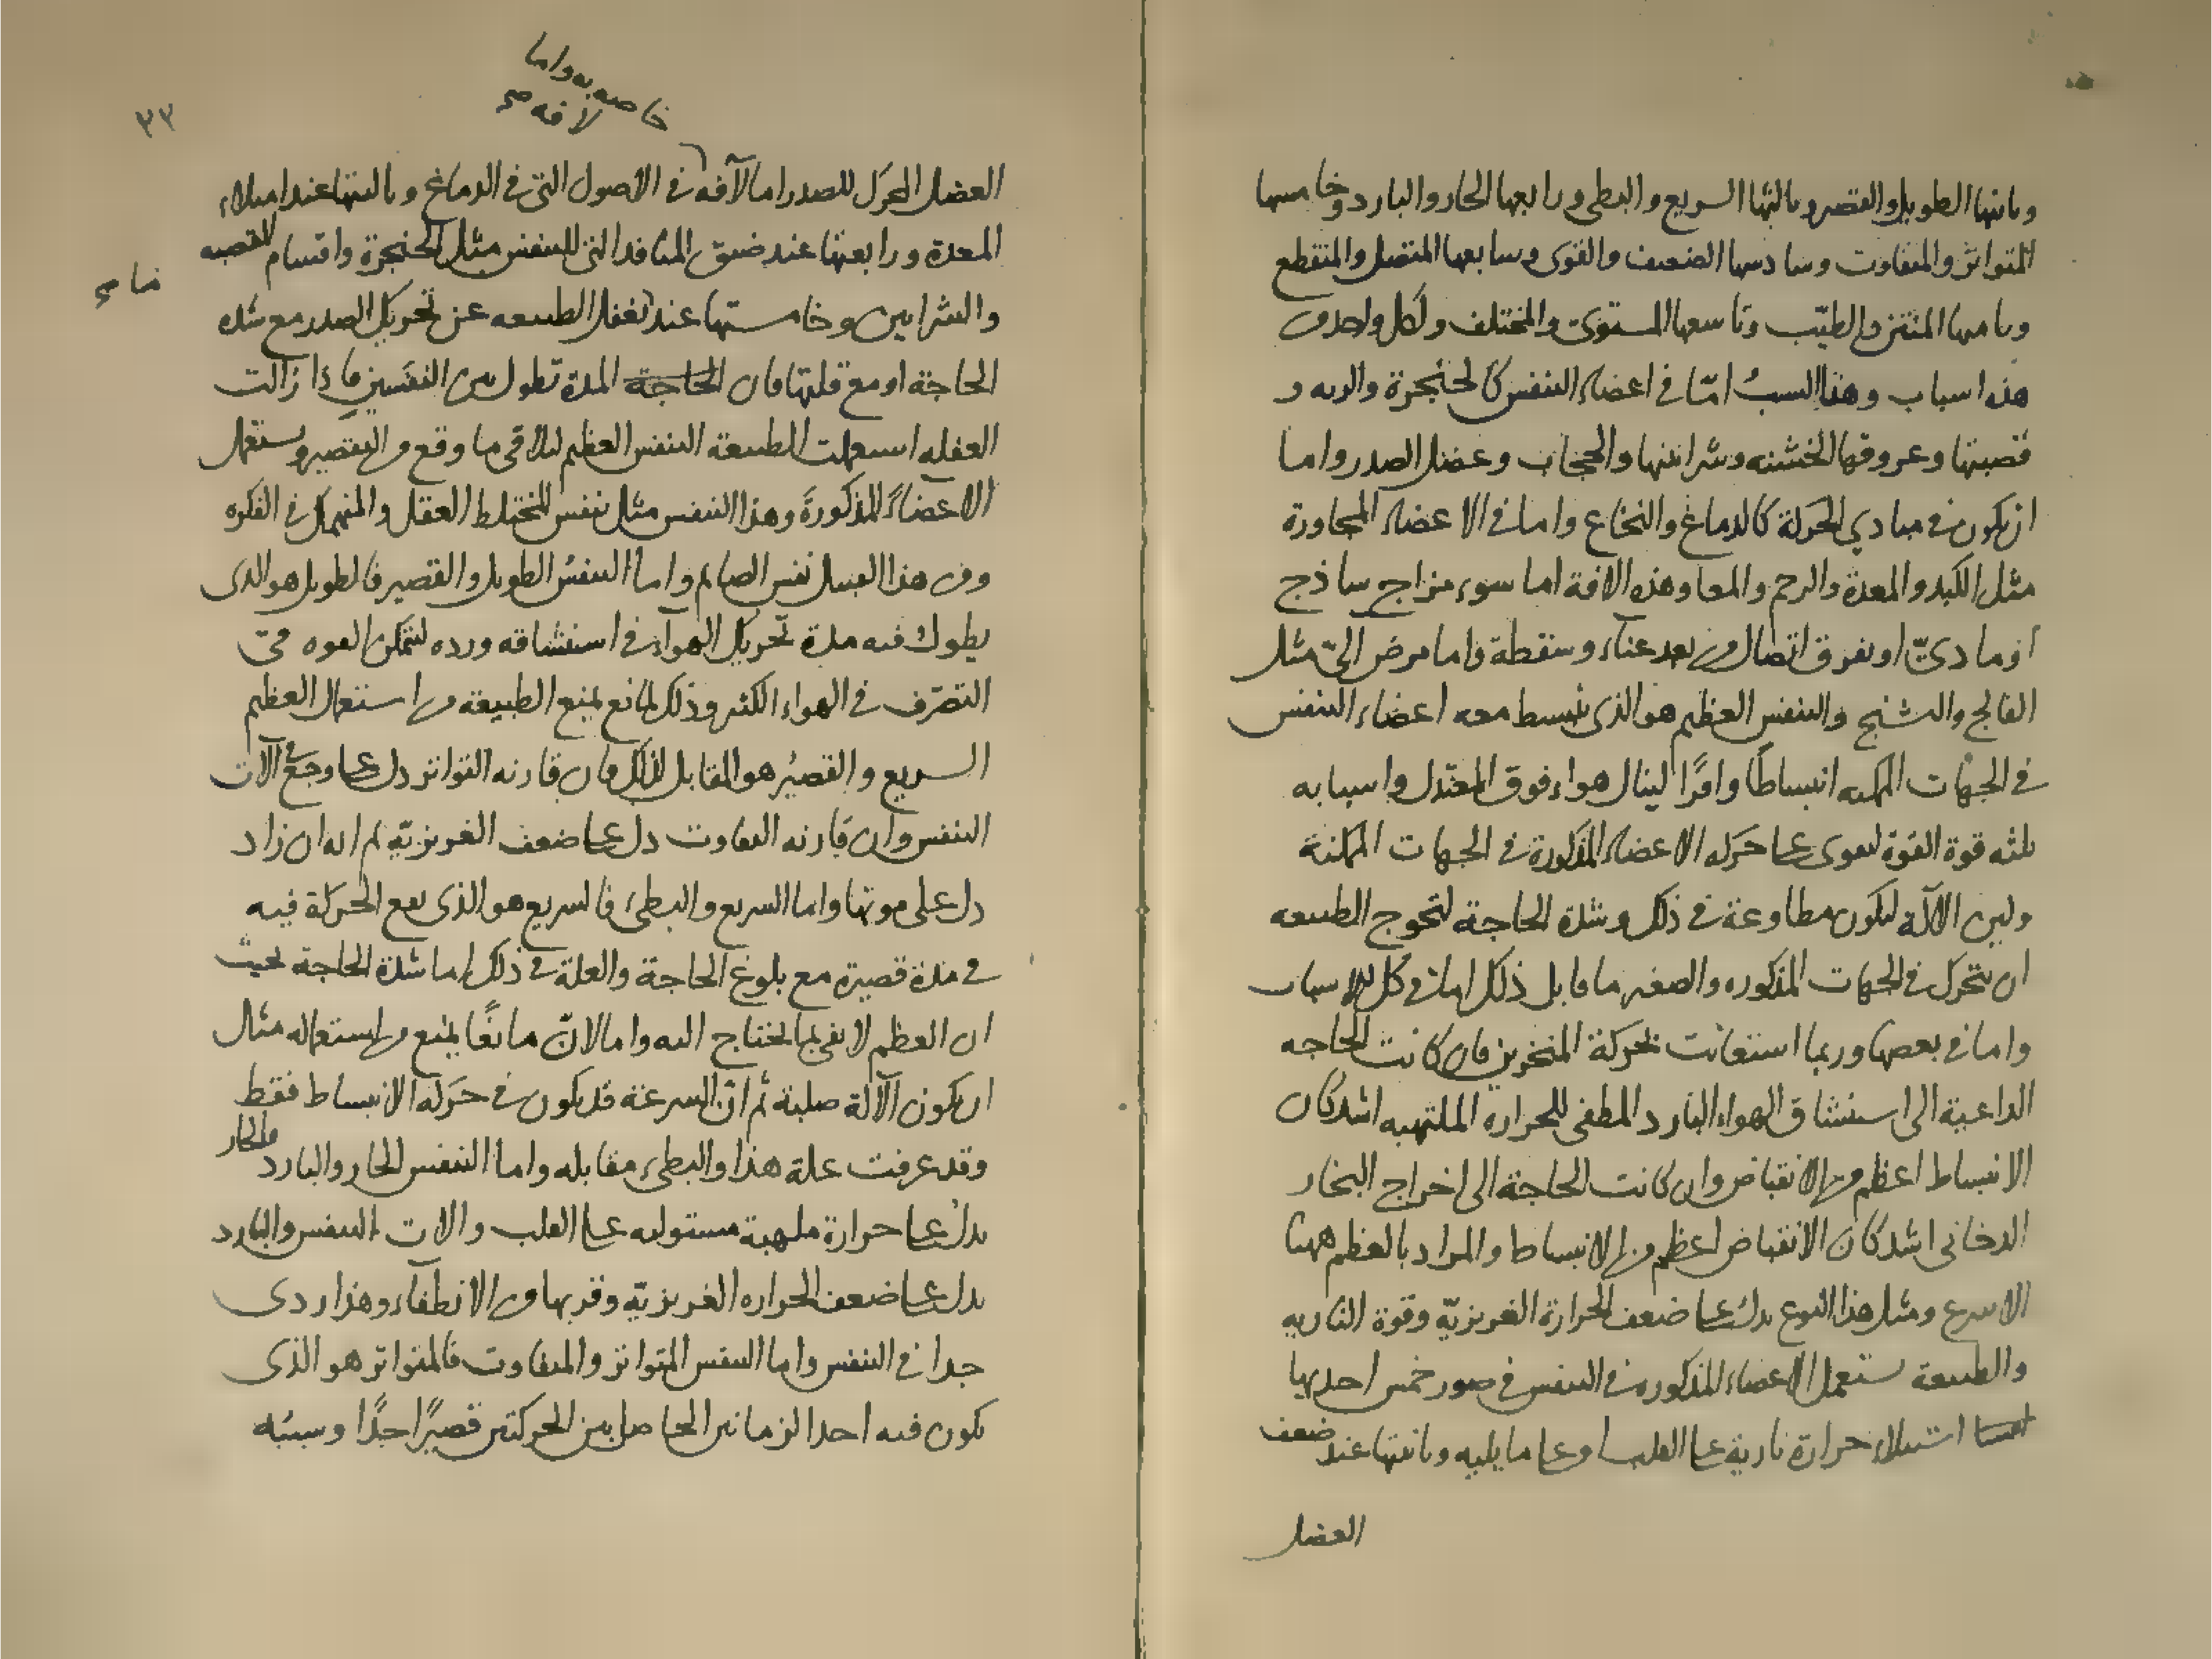 وثانيها الطويل والقصير وثالثها السريع والبطي ورابعها الحار والبارد وخامسها
المتواتر والمتفاوت وسادسها الضعيف والقوى وسابعها المتصل والمنقطع
وثامنها المنتن والطيّب وتاسعها المستوى والمختلف ولكل واحد من
هذه اسباب وهذا السببُ امّا في اعضاء التنفس كالحنجرة والريه و
قصبتها وعروقها الخشنه وشرايينها والحجاب وعضل الصدر واما
ان يكون في مبادي الحركة كالدماغ والنخاع واما في الاعضاء المجاورة
مثل الكبد والمعدة والرحم والمعا وهذه الافة اما سوء مزاج ساذج
او ماديّ او تفرق اتصال من بعد عناء وسقطة واما مرض اليّ مثل
الفالج والتشنج والتنفس العظيم هو الذى ينبسط معه اعضاء التنفس
في الجهات الممكنه انبساطًا وافرًا لينال هواء فوق المعتدل واسبابه
ثلثه قوة القوة لتقوى على حركه الاعضاء المذكورة في الجهات الممكنة
ولين الآله لتكون مطاوعة في ذلك وشدة الحاجة لتحوج الطبيعه
ان تتحرك في الجهات المذكوره والصغير ما قابل ذلك اما في كل الاسباب
واما في بعضها وربما استعانت بحركة المنخرين فان كانت الحاجه
الداعية الى استنشاق الهواء البارد المطفى للحراره الملتهبه اشد كان
الانبساط اعظم من الانقباض وان كانت الحاجة الى اخراج البخار
الدخانى اشد كان الانقباض اعظم من الانبساط والمراد بالعظم ههنا
الاسرع ومثل هذا النوع يدل على ضعف الحرارة الغريزيّه وقوة الناريه
والطبيعة تستعمل الاعضاء المذكوره في التنفس في صور خمس احديها
اشتعلال حرارة نارية على القلب وعلى ما يليه وثانيتها عند ضعف
العضل
٣٣
خاصه به واما
لافه صح
العضل المحرك للصدر اما لآفه في الاصول التى في الدماغ وثالثتها عند امتلاء
المعدة ورابعتها عند ضيق المنافذ التى للتنفس مثل الحنجرة واقسام القصبه
والشرايين وخامستها عند تغفل الطبيعه عن تحريك الصدر مع شده
الحاجة او مع قلتها فان الحاجة المدة تطول بين النفَسين فاذا زالت
الغفله استعملت الطبيعة التنفس العظيم لتلافى ما وقع من التقصير وتستعمل
الاعضاءَ المذكورةَ وهذا التنفس مثل تنفس المختلط العقل والمنهمك في الفكره
ومن هذا القبيل نفس الصايم واما التنفسُ الطويل والقصير فالطويل هو الذى
يطول فيه مدة تحريك الهواء في استنشاقه ورده لتتمكن القوه من
التصرّف في الهواء الكثير وذلك لمانع يمنع الطبيعة من استعمال العظيم
السريع والقصيُر هو المقابل لذلك فان قارنه التواتر دل على وجع في آلات
التنفس وان قارنه التفاوت دل على ضعف الغريزيّه ثم انه ان زاد
دل على موتها واما السريع والبطئ فالسريع هو الذى تقع الحركة فيه
في مدة قصيرة مع بلوغ الحاجة والعلة في ذلك اما شدة الحاجة بحيث
ان العظم لا يفى بما يحتاج اليه واما لانّ مانعًا يمنع من استعماله مثال
ان يكون الآلة صلبة ثم انّ السرعة قد يكون في حركه الانبساط فقط
وقد عرفت علة هذا والبطئ مقابله واما التنفس الحار والبارد فالحار
يدل على حرارة ملهبة مستوليه على القلب والات التنفس والبارد
يدل على ضعف الحراره الغريزيّه وقربها من الانطفاء وهذا ردى
جدا في التنفس واما التنفس المتواتر والمتفاوت فالمتواتر هو الذى
يكون فيه احد الزمانين الحاصل بين الحركتين قصيرًا جدًا وسببُه